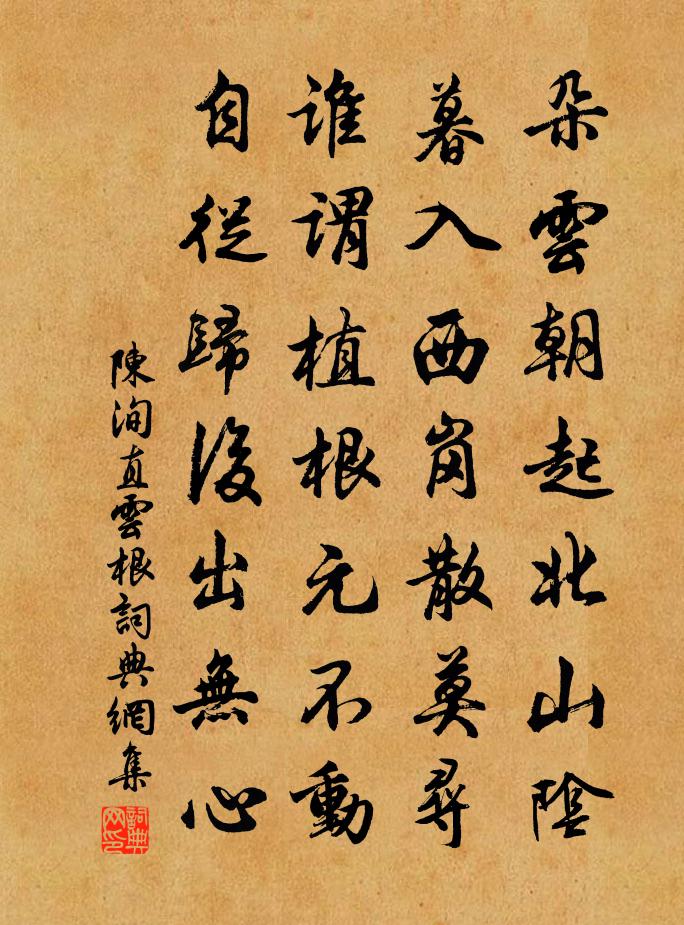 朵雲朝起北山陰
暮入西崗散莫尋
誰謂植根元不動
自從歸後出無心
陳洵直雲根詞典網集
詞典网印